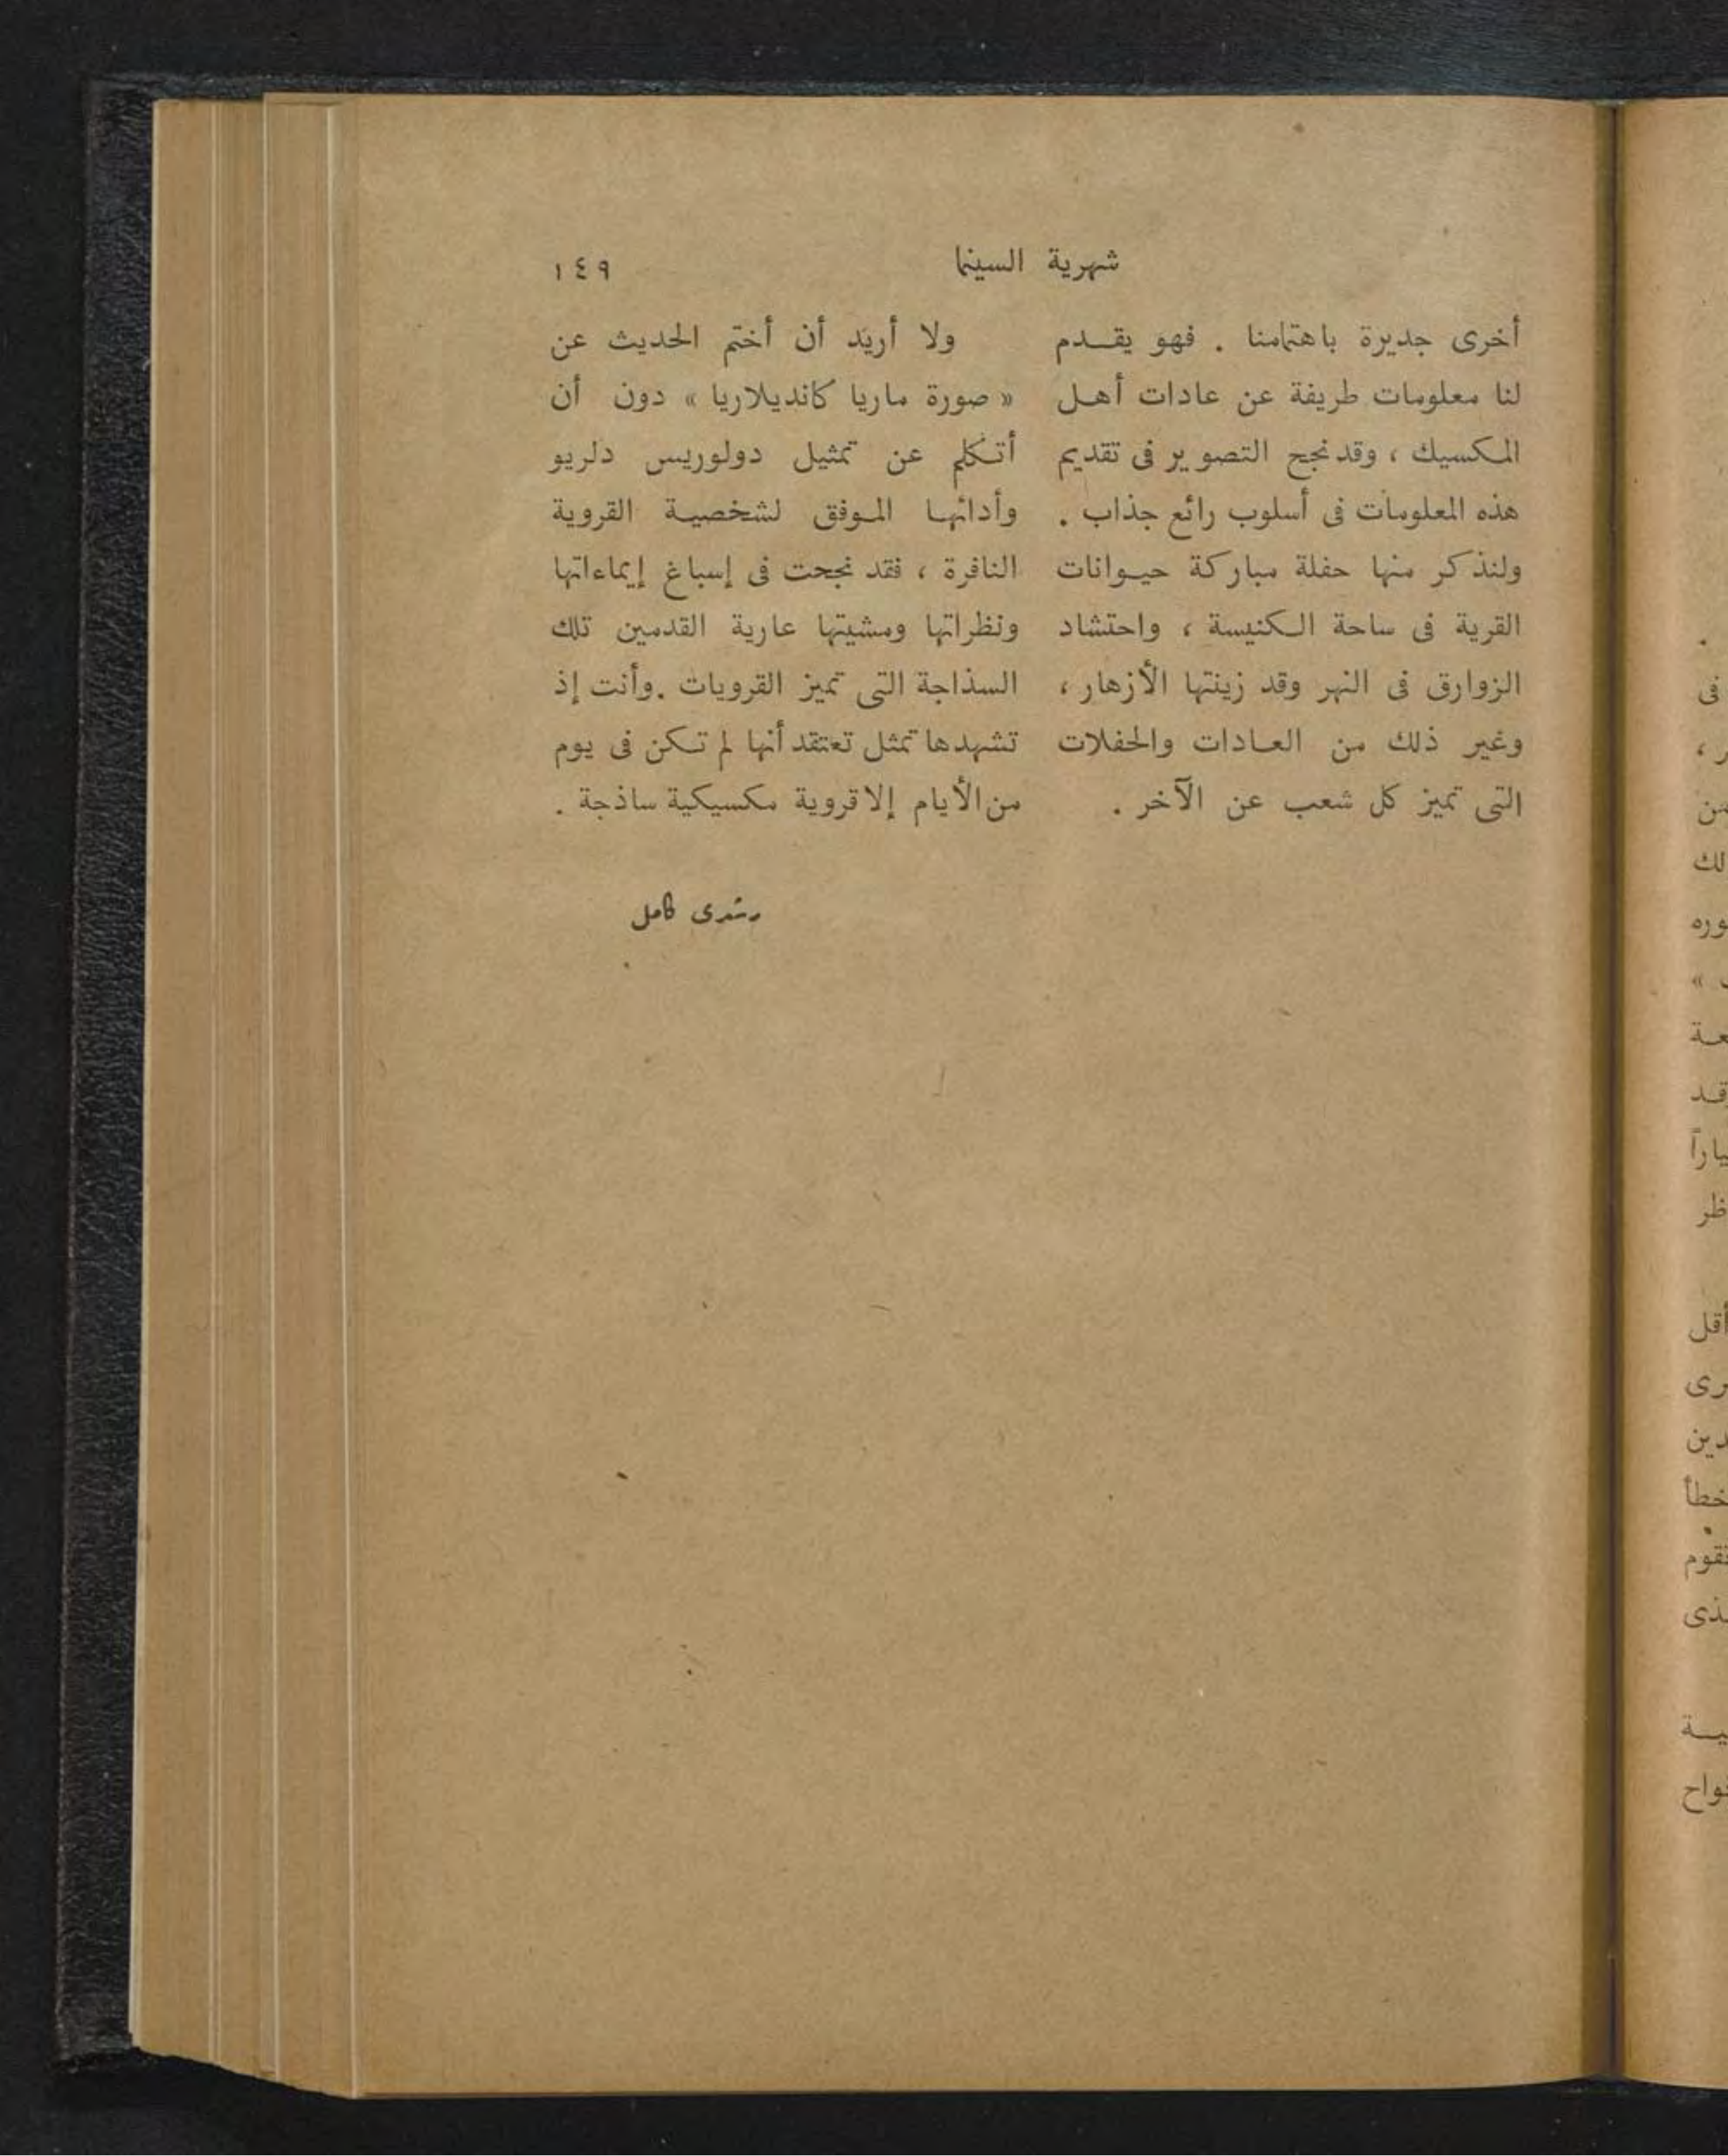 شهرية السينما
١٤٩
أخرى جديرة باهتمامنا . فهو يقدم
لنا معلومات طريفة عن عادات أهل
المكسيك ، وقد نجح التصوير فى تقديم
هذه المعلومات فى أسلوب رائع جذاب .
ولنذكر منها حفلة مباركة حيوانات
القرية فى ساحة الكنيسة ، واحتشاد
الزوارق فى النهر وقد زينتها الأزهار ،
وغير ذلك من العادات والحفلات
التى تميز كل شعب عن الآخر .
ولا أريد أن أختم الحديث عن
« صورة ماريا كانديلاريا » دون أن
أتكلم عن تمثيل دولوريس دلريو
وأدائها الموفق لشخصية القروية
النافرة ، فقد نجحت فى إسباغ إيماءاتها
ونظراتها ومشيتها عارية القدمين تلك
السذاجة التى تميز القرويات . وأنت إذ
تشهدها تمثل تعتقد أنها لم تكن فى يوم
من الأيام إلا قروية مكسيكية ساذجة .
رشدى كامل